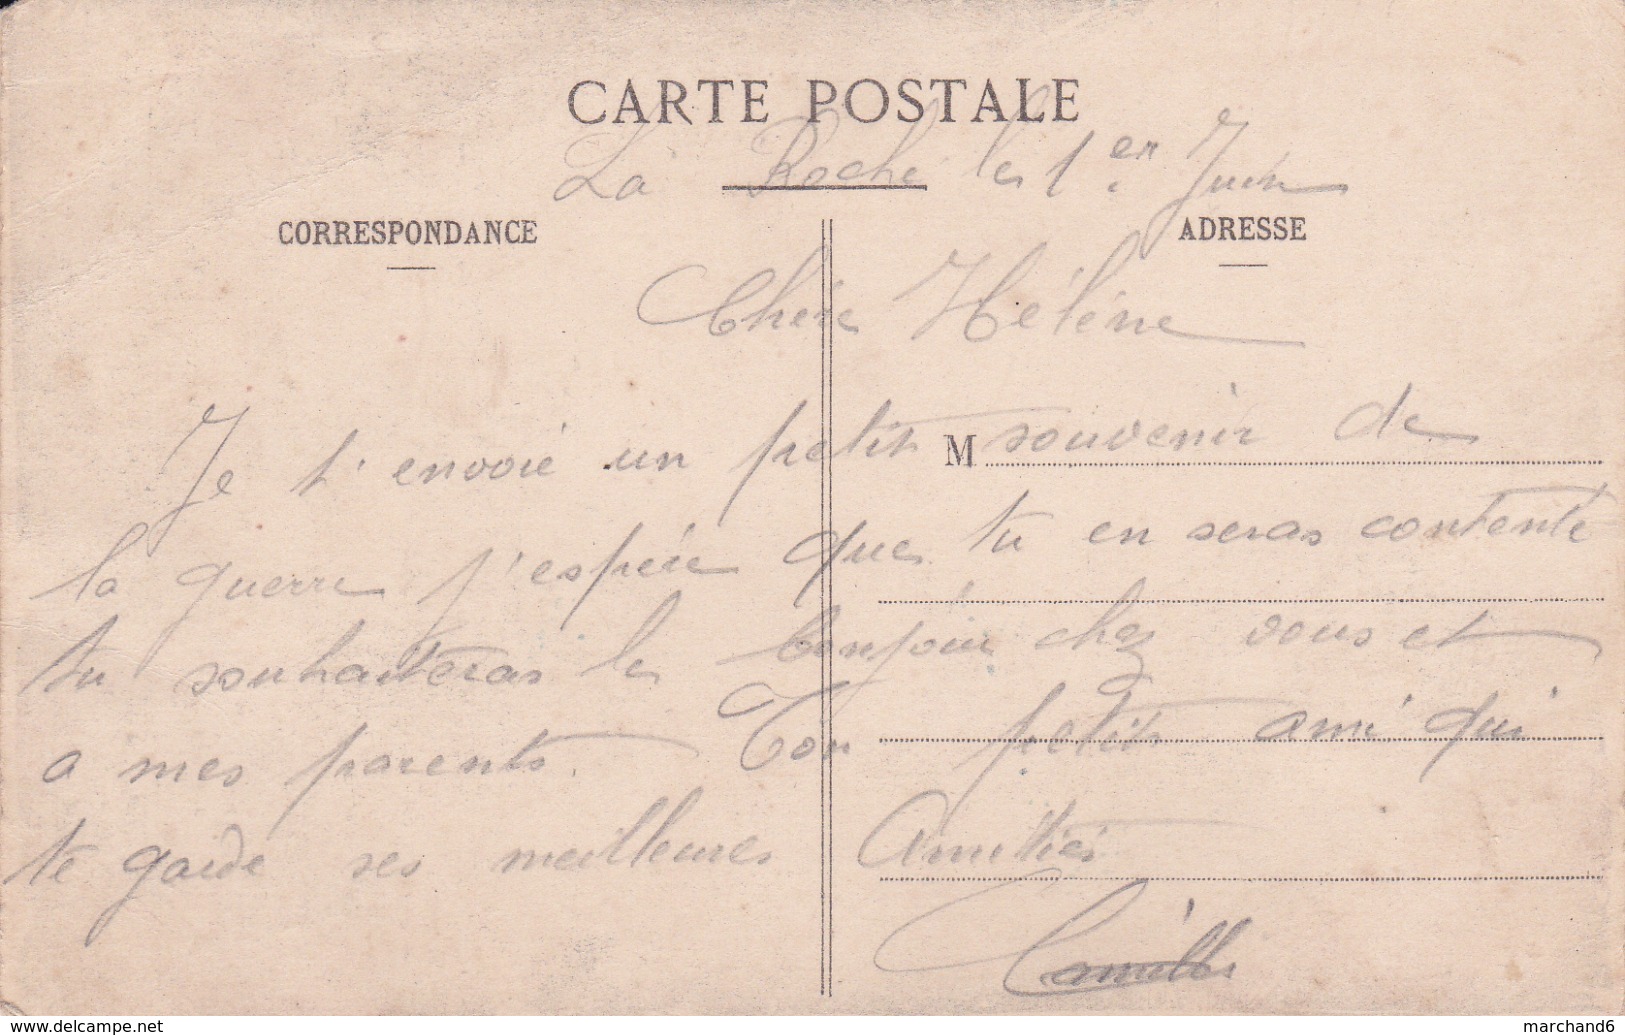 CARTE POSTALE
La Roche le 1.er Juin
CORRESPONDANCE
ADRESSE
Chère Hélène
Je t'envoie un petit souvenir de
M
la guerre j'espère que tu en seras contente
tu souhaiteras le bonjour chez vous et
a mes parents. Ton petit ami qui
te garde ses meilleures Amitiés
Camille
www.delcampe.net
marchand6